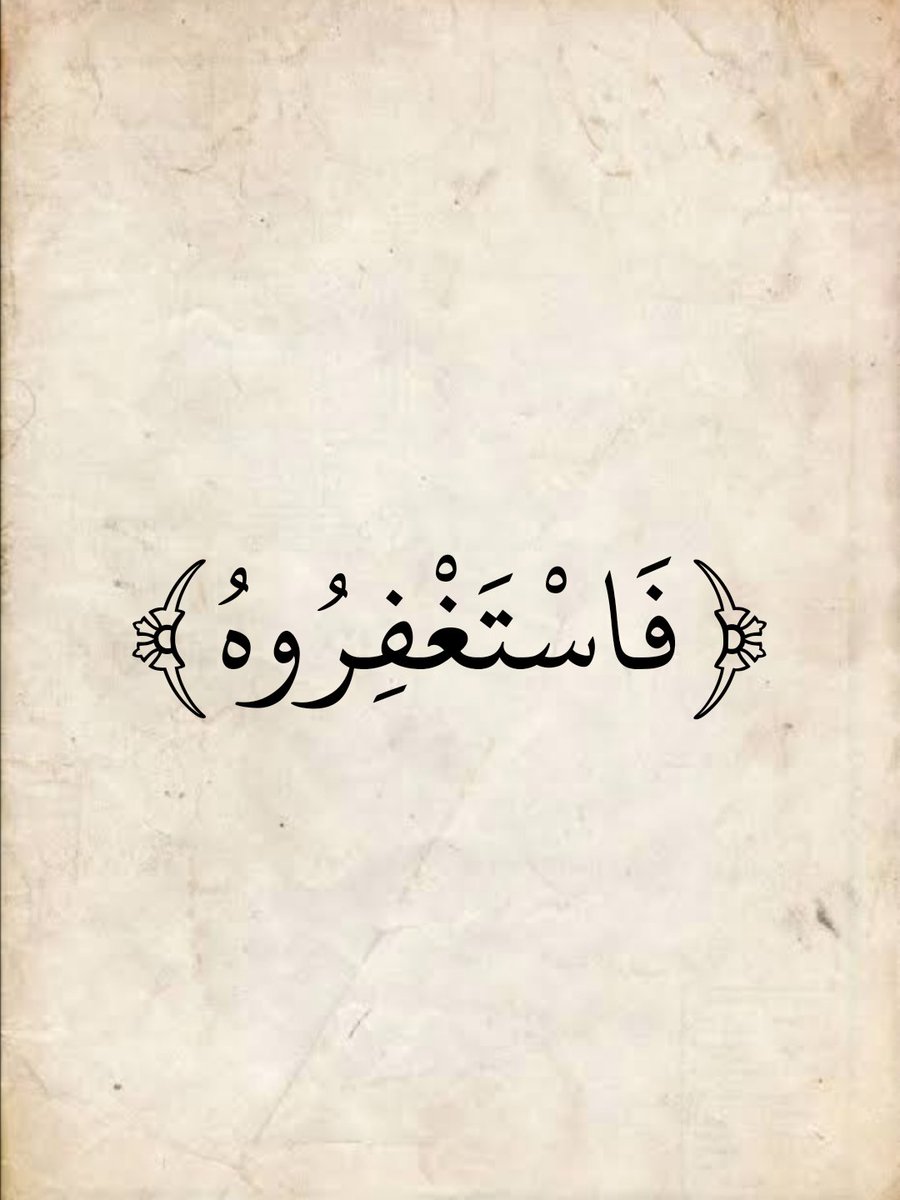 ﴿فَاسْتَغْفِرُوهُ﴾